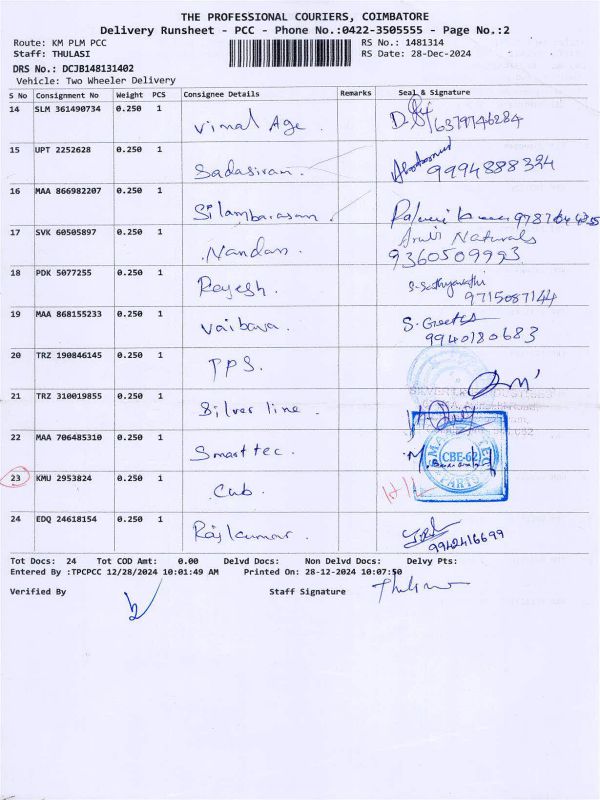 THE PROFESSIONAL COURIERS, COIMBATORE
Delivery Runsheet - PCC - Phone No.:0422-3505555 - Page No.:2
Route: KM PLM PCC RS No.: 1481314
Staff: THULASI RS Date: 28-Dec-2024
DRS No.: DCJB148131402
Vehicle: Two Wheeler Delivery
S No Consignment No Weight PCS Consignee Details Remarks Seal & Signature
14 SLM 361490734 0.250 1 Vimal Age. 6379746284
15 UPT 2252628 0.250 1 Sadasivam. 9994888394
16 MAA 866982207 0.250 1 Silambarasan
17 SVK 60505897 0.250 1 Nandan. Naturals
9360509993
18 PDK 5077255 0.250 1 Rayesh. S. Sathyavathi
9715087144
19 MAA 868155233 0.250 1 Vaibava. S. Greetes
9940180683
20 TRZ 190846145 0.250 1 PPS.
21 TRZ 310019855 0.250 1 Silver line.
22 MAA 706485310 0.250 1 Smart tec. CBE-62
PARTS
23 KMU 2953824 0.250 1 Cub.
24 EDQ 24618154 0.250 1 Rajkumar. 9942416699
Tot Docs: 24 Tot COD Amt: 0.00 Delvd Docs: Non Delvd Docs: Delvy Pts:
Entered By :TPCPCC 12/28/2024 10:01:49 AM Printed On: 28-12-2024 10:07:50
Verified By Staff Signature